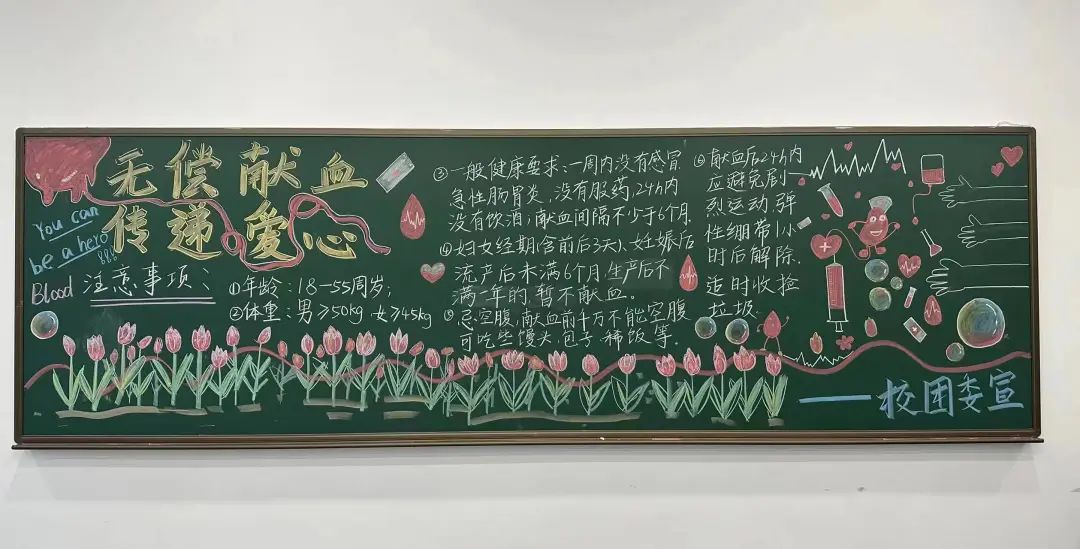 无偿献血
传递爱心
You can
be a hero
Blood
注意事项:
①年龄:18—55周岁;
②体重:男≥50kg 女≥45kg
③一般健康要求:一周内没有感冒
急性肠胃炎、没有服药,24h内
没有饮酒;献血间隔不少于6个月
④妇女经期(含前后3天)、妊娠后
流产后未满6个月,生产后不
满一年的,暂不献血。
⑤忌空腹,献血前千万不能空腹
可吃些馒头,包子,稀饭等.
⑥献血后24h内
应避免剧
烈运动,弹
性绷带1小
时后解除.
适时收捡
垃圾.
——校团委宣